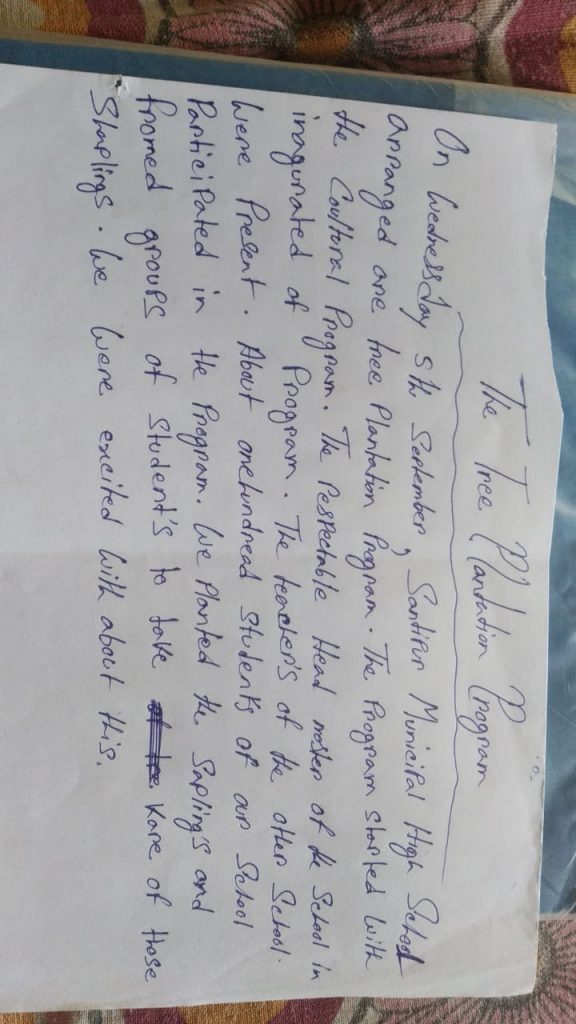 The Tree Plantation Program
On Wednessday 5th September, Santipur Municipal High School
arranged one tree Plantation Program. The Program started with
the Coultoral Program. The respectable Head master of the School in
inagurated of Program. The teacher's of the other School.
were Present. About onehundread students of our School
Participated in the Program. We Planted the Sapling's and
fromed groups of student's to take kare of those
Shaplings. We were excited with about this.